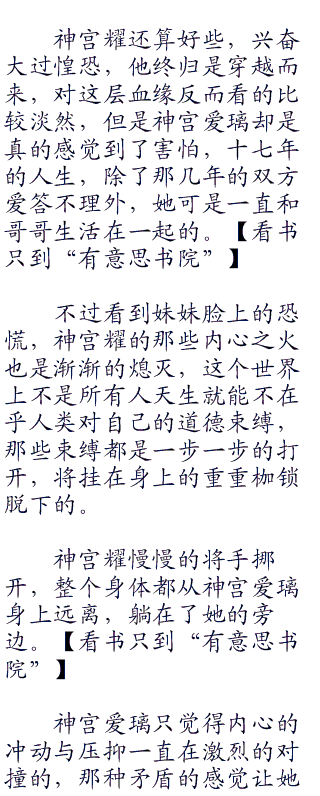 神宫耀还算好些，兴奋
大过惶恐，他终归是穿越而
来，对这层血缘反而看的比
较淡然，但是神宫爱璃却是
真的感觉到了害怕，十七年
的人生，除了那几年的双方
爱答不理外，她可是一直和
哥哥生活在一起的。【看书
只到“有意思书院”】
不过看到妹妹脸上的恐
慌，神宫耀的那些内心之火
也是渐渐的熄灭，这个世界
上不是所有人天生就能不在
乎人类对自己的道德束缚，
那些束缚都是一步一步的打
开，将挂在身上的重重枷锁
脱下的。
神宫耀慢慢的将手挪
开，整个身体都从神宫爱璃
身上远离，躺在了她的旁
边。【看书只到“有意思书
院”】
神宫爱璃只觉得内心的
冲动与压抑一直在激烈的对
撞的，那种矛盾的感觉让她